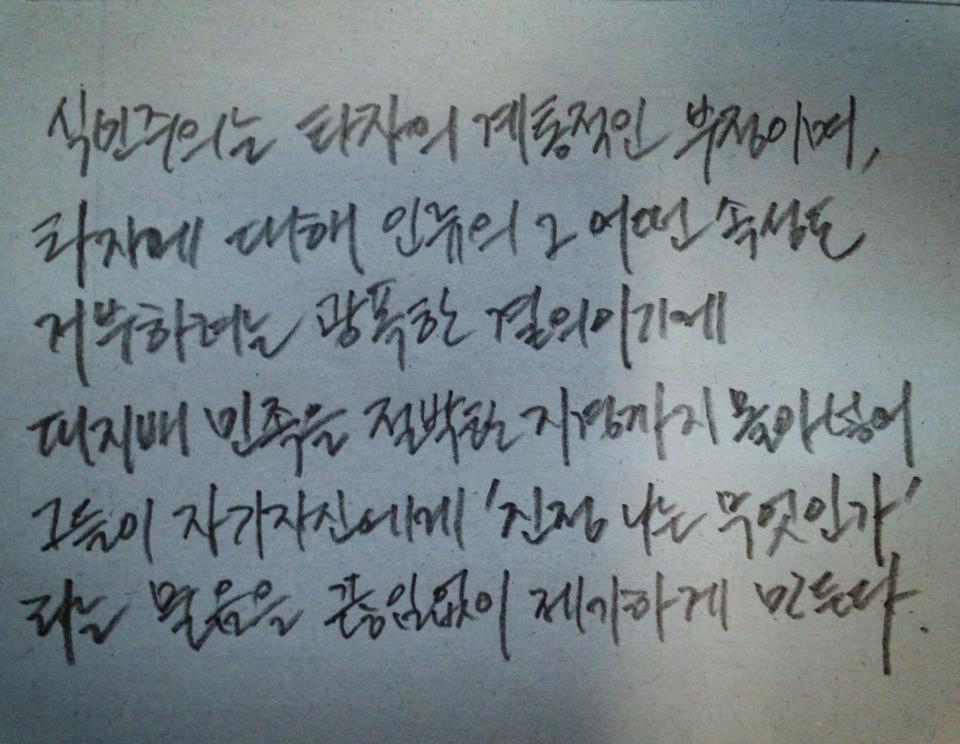 식민주의는 타자의 계통적인 부정이며,
타자에 대해 인류의 그 어떤 속성도
거부하려는 광폭한 결의이기에
피지배 민족을 절박한 지경까지 몰아넣어
그들이 자기자신에게 '진정 나는 무엇인가'
라는 물음을 끊임없이 제기하게 만든다.